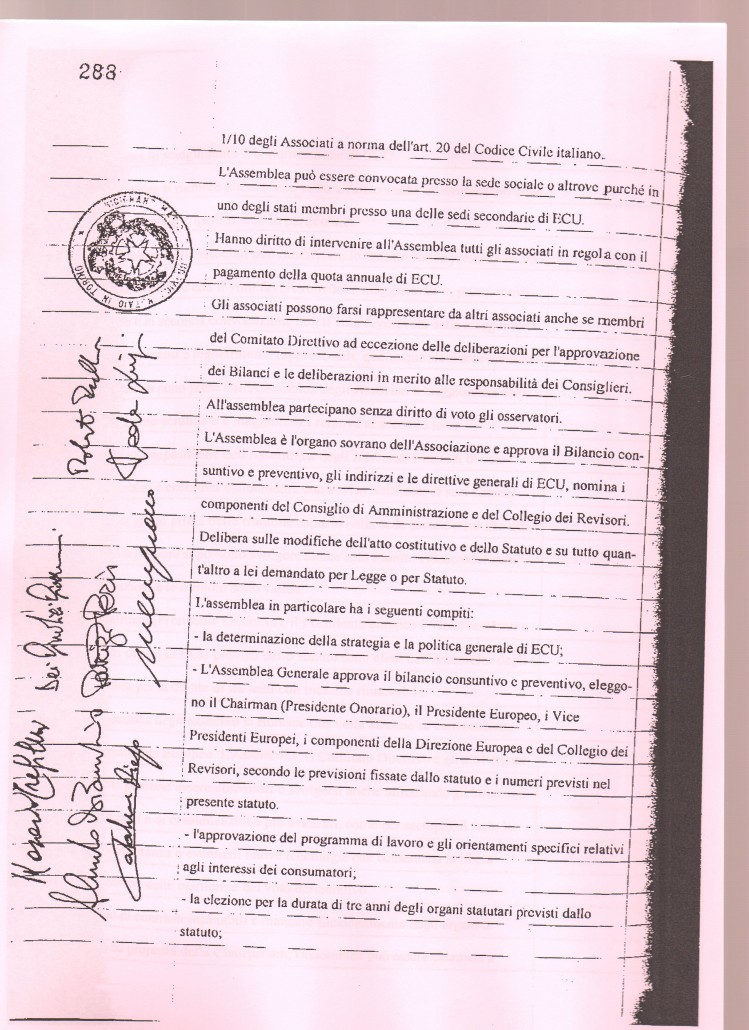 288
1/10 degli Associati a norma dell'art. 20 del Codice Civile italiano.
L'Assemblea può essere convocata presso la sede sociale o altrove purché in
uno degli stati membri presso una delle sedi secondarie di ECU.
Hanno diritto di intervenire all'Assemblea tutti gli associati in regola con il
pagamento della quota annuale di ECU.
Gli associati possono farsi rappresentare da altri associati anche se membri
del Comitato Direttivo ad eccezione delle deliberazioni per l'approvazione
dei Bilanci e le deliberazioni in merito alle responsabilità dei Consiglieri.
All'assemblea partecipano senza diritto di voto gli osservatori.
L'Assemblea è l'organo sovrano dell'Associazione e approva il Bilancio con-
suntivo e preventivo, gli indirizzi e le direttive generali di ECU, nomina i
componenti del Consiglio di Amministrazione e del Collegio dei Revisori.
Delibera sulle modifiche dell'atto costitutivo e dello Statuto e su tutto quan-
t'altro a lei demandato per Legge o per Statuto.
L'assemblea in particolare ha i seguenti compiti:
- la determinazione della strategia e la politica generale di ECU;
- L'Assemblea Generale approva il bilancio consuntivo e preventivo, eleggo-
no il Chairman (Presidente Onorario), il Presidente Europeo, i Vice
Presidenti Europei, i componenti della Direzione Europea e del Collegio dei
Revisori, secondo le previsioni fissate dallo statuto e i numeri previsti nel
presente statuto.
- l'approvazione del programma di lavoro e gli orientamenti specifici relativi
agli interessi dei consumatori;
- la elezione per la durata di tre anni degli organi statutari previsti dallo
statuto;
NOTAIO IN TORINO